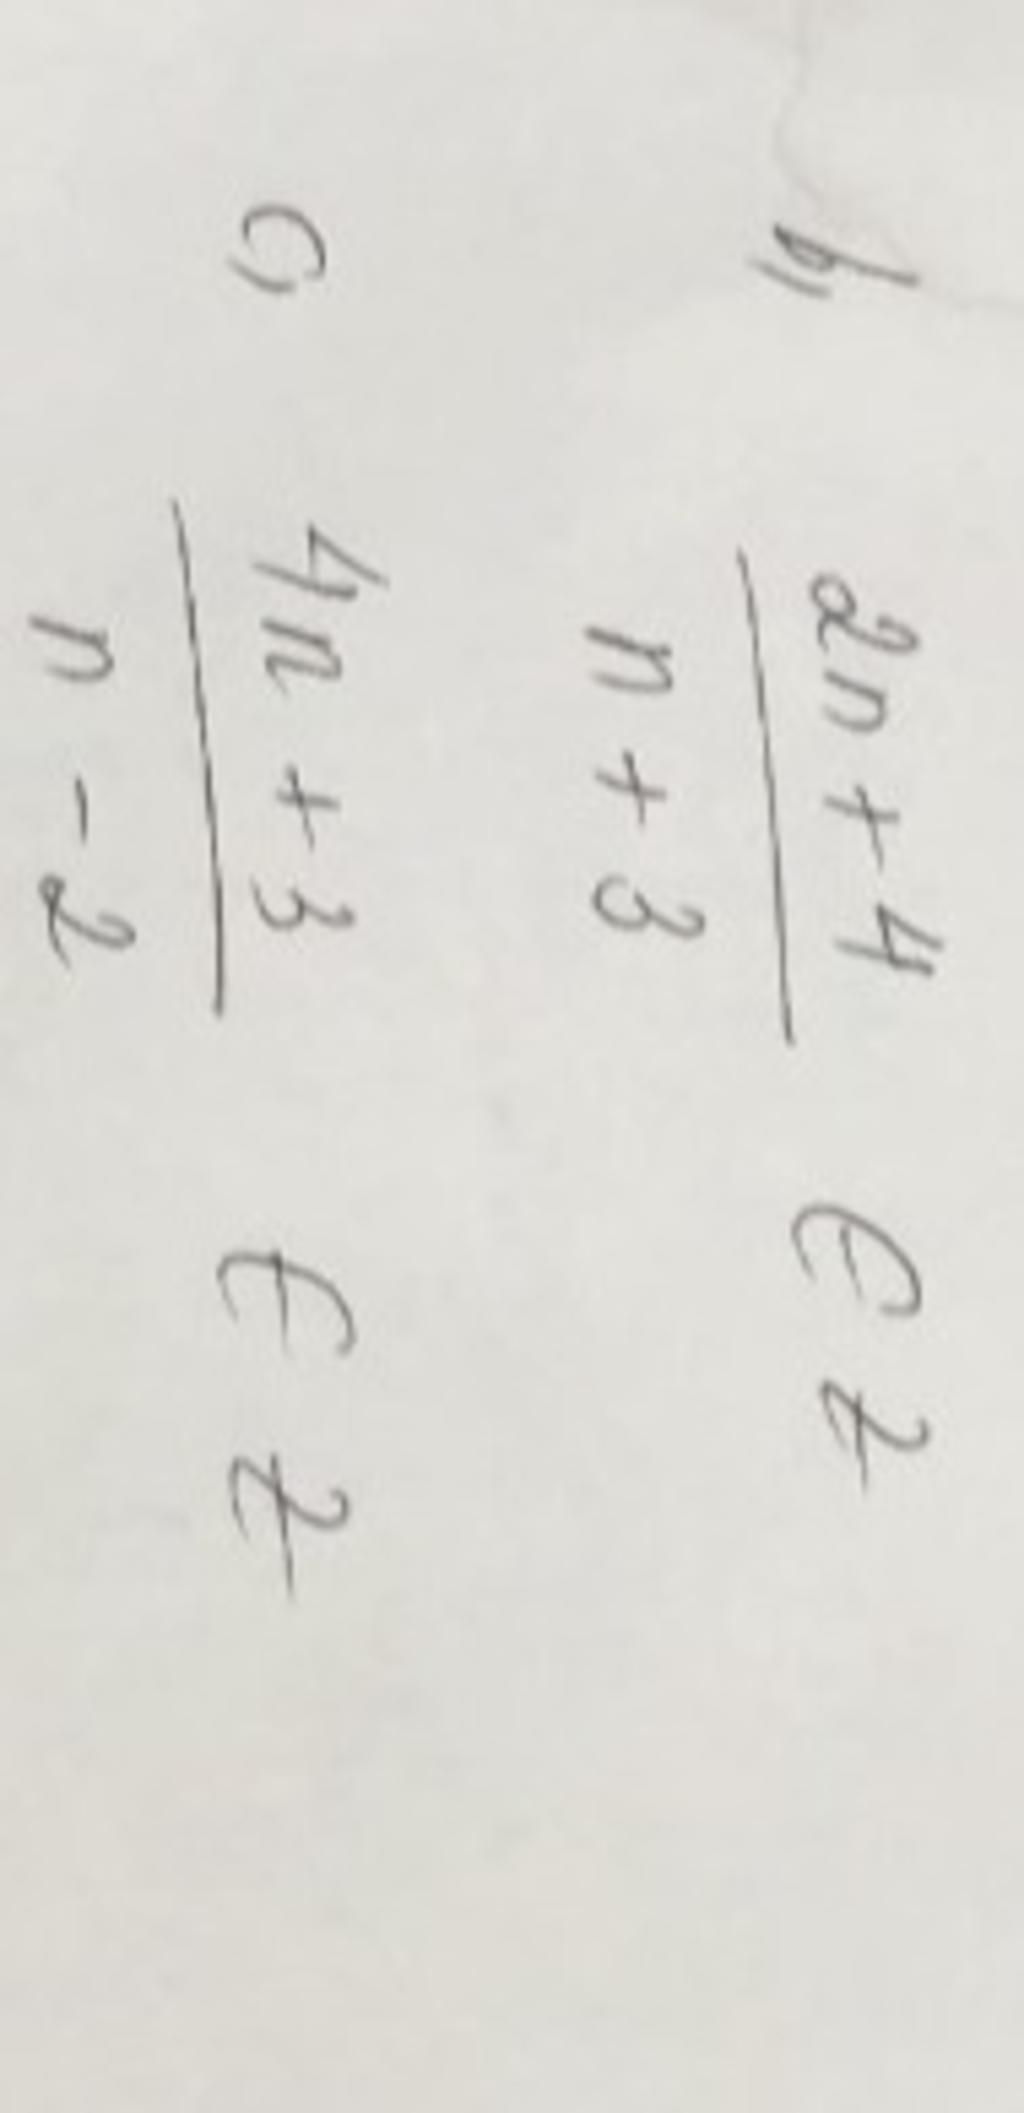 b, 2n + 4 / n + 3 ∈ Z
c, 4n + 3 / n - 2 ∈ Z